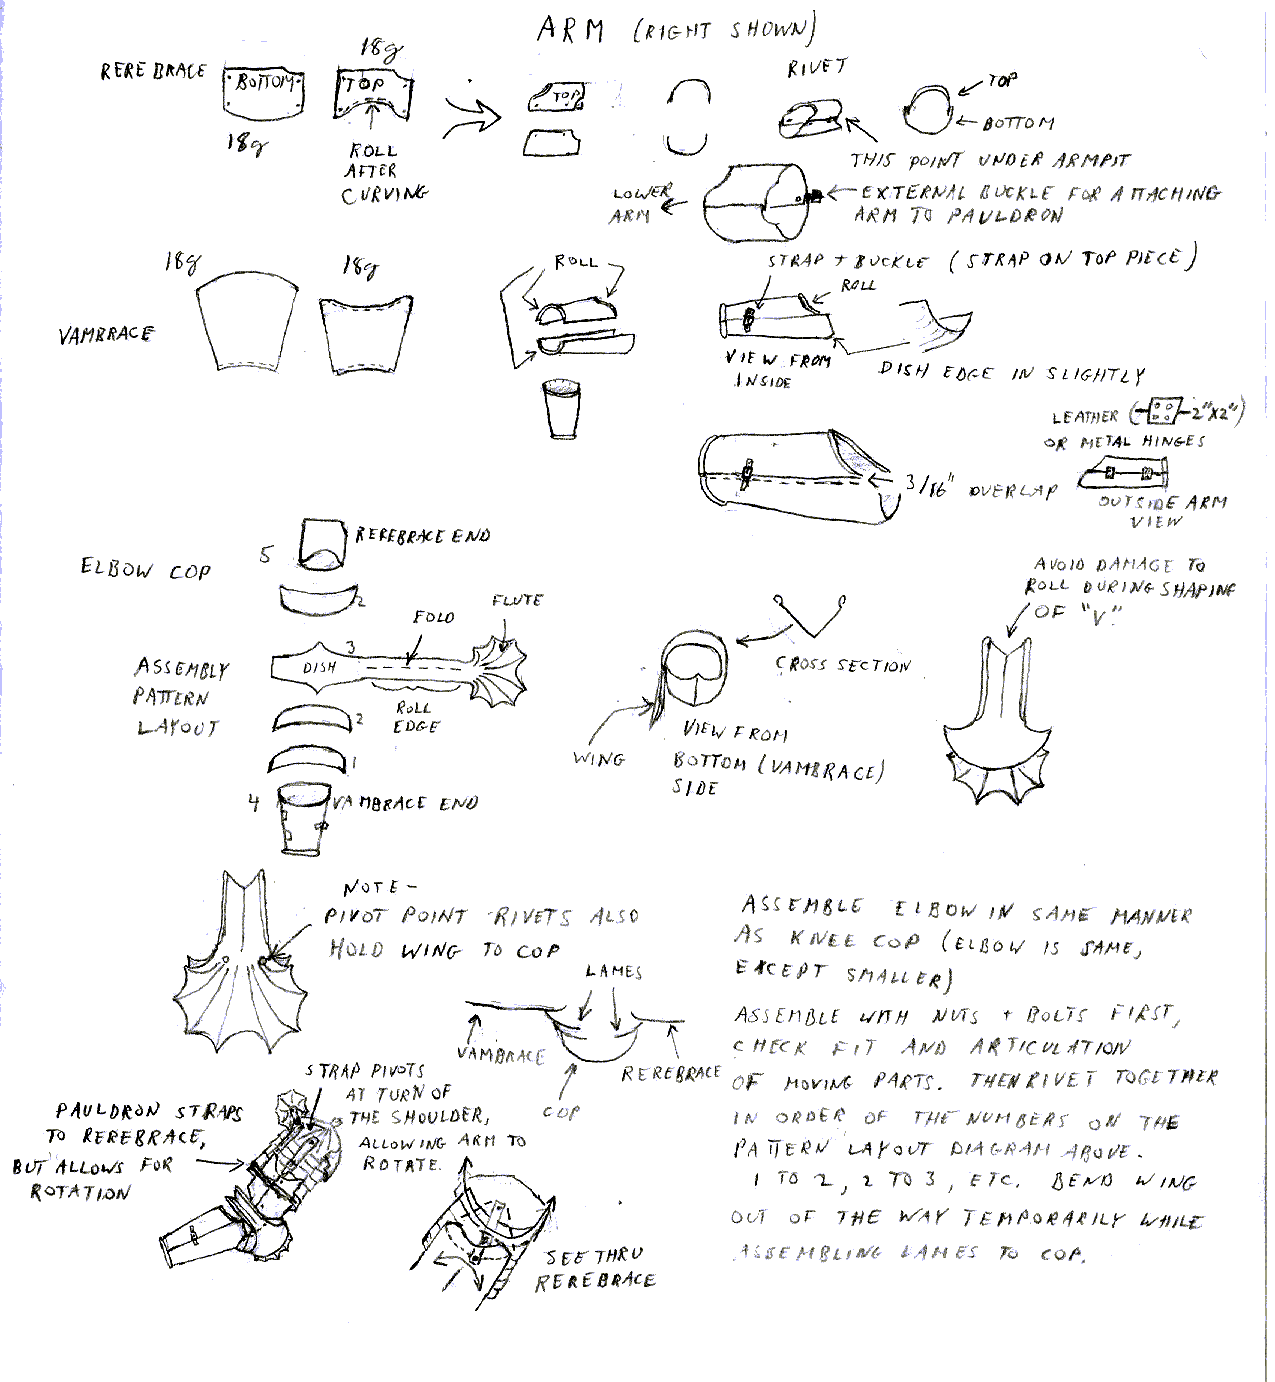 ARM (RIGHT SHOWN)
REREBRACE
BOTTOM
18g
18g
TOP
ROLL
AFTER
CURVING
TOP
RIVET
TOP
BOTTOM
THIS POINT UNDER ARMPIT
LOWER
ARM
EXTERNAL BUCKLE FOR ATTACHING
ARM TO PAULDRON
VAMBRACE
18g
18g
ROLL
STRAP + BUCKLE (STRAP ON TOP PIECE)
ROLL
VIEW FROM
INSIDE
DISH EDGE IN SLIGHTLY
LEATHER ( 2"X2")
OR METAL HINGES
3/16" OVERLAP
OUTSIDE ARM
VIEW
ELBOW COP
5
REREBRACE END
2
ASSEMBLY
PATTERN
LAYOUT
DISH
3
FOLD
FLUTE
ROLL
EDGE
2
1
4
VAMBRACE END
CROSS SECTION
WING
VIEW FROM
BOTTOM (VAMBRACE)
SIDE
AVOID DAMAGE TO
ROLL DURING SHAPING
OF "V"
NOTE -
PIVOT POINT RIVETS ALSO
HOLD WING TO COP
LAMES
VAMBRACE
COP
REREBRACE
STRAP PIVOTS
AT TURN OF
THE SHOULDER,
ALLOWING ARM TO
ROTATE.
PAULDRON STRAPS
TO REREBRACE,
BUT ALLOWS FOR
ROTATION
SEE THRU
REREBRACE
ASSEMBLE ELBOW IN SAME MANNER
AS KNEE COP (ELBOW IS SAME,
EXCEPT SMALLER)
ASSEMBLE WITH NUTS + BOLTS FIRST,
CHECK FIT AND ARTICULATION
OF MOVING PARTS. THEN RIVET TOGETHER
IN ORDER OF THE NUMBERS ON THE
PATTERN LAYOUT DIAGRAM ABOVE.
1 TO 2, 2 TO 3, ETC. BEND WING
OUT OF THE WAY TEMPORARILY WHILE
ASSEMBLING LAMES TO COP.